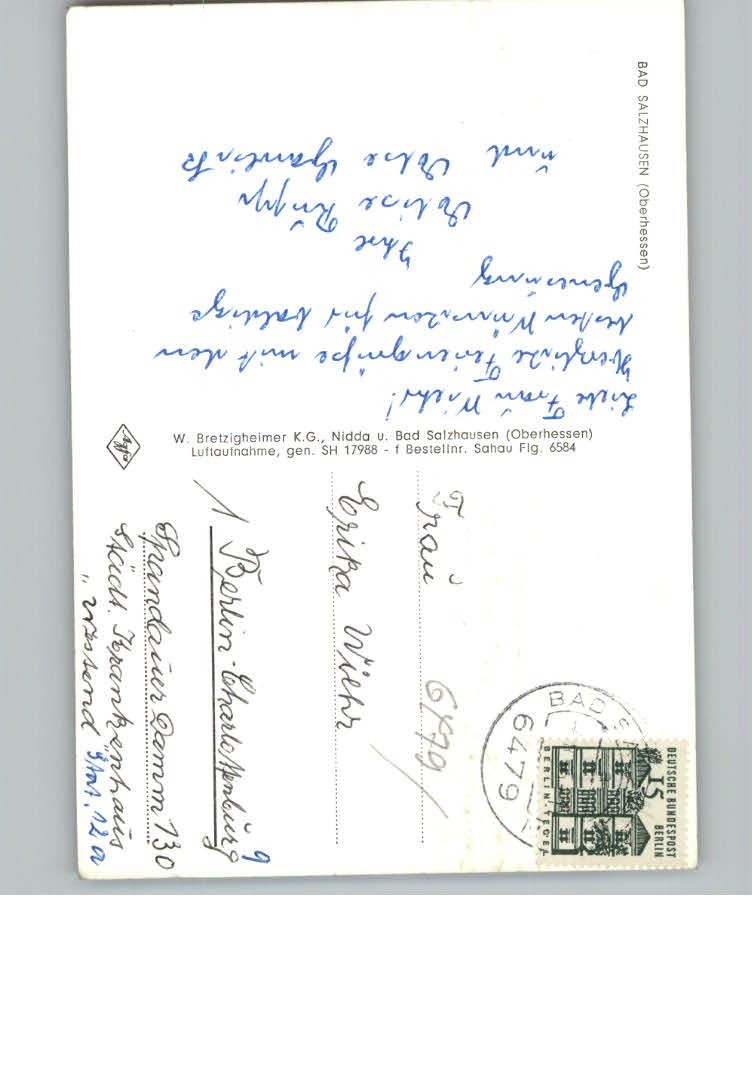 BAD SALZHAUSEN (Oberhessen)
Liebe Frau Wiehr!
Herzliche Feriengrüße mit den
besten Wünschen für baldige
Genesung
Ihre
Elise Rupp
und Else
W. Bretzigheimer K.G., Nidda u. Bad Salzhausen (Oberhessen)
Luftaufnahme, gen. SH 17988 - f Bestellnr. Sahau Flg. 6584
Agfa
DEUTSCHE BUNDESPOST
BERLIN
15
BERLIN-TEGEL
BAD SA
6479
Frau
6479/
Erika Wiehr
1 Berlin-Charlottenburg 9
Spandauer Damm 130
Städt. Krankenhaus
"Westend" Stat. 12a